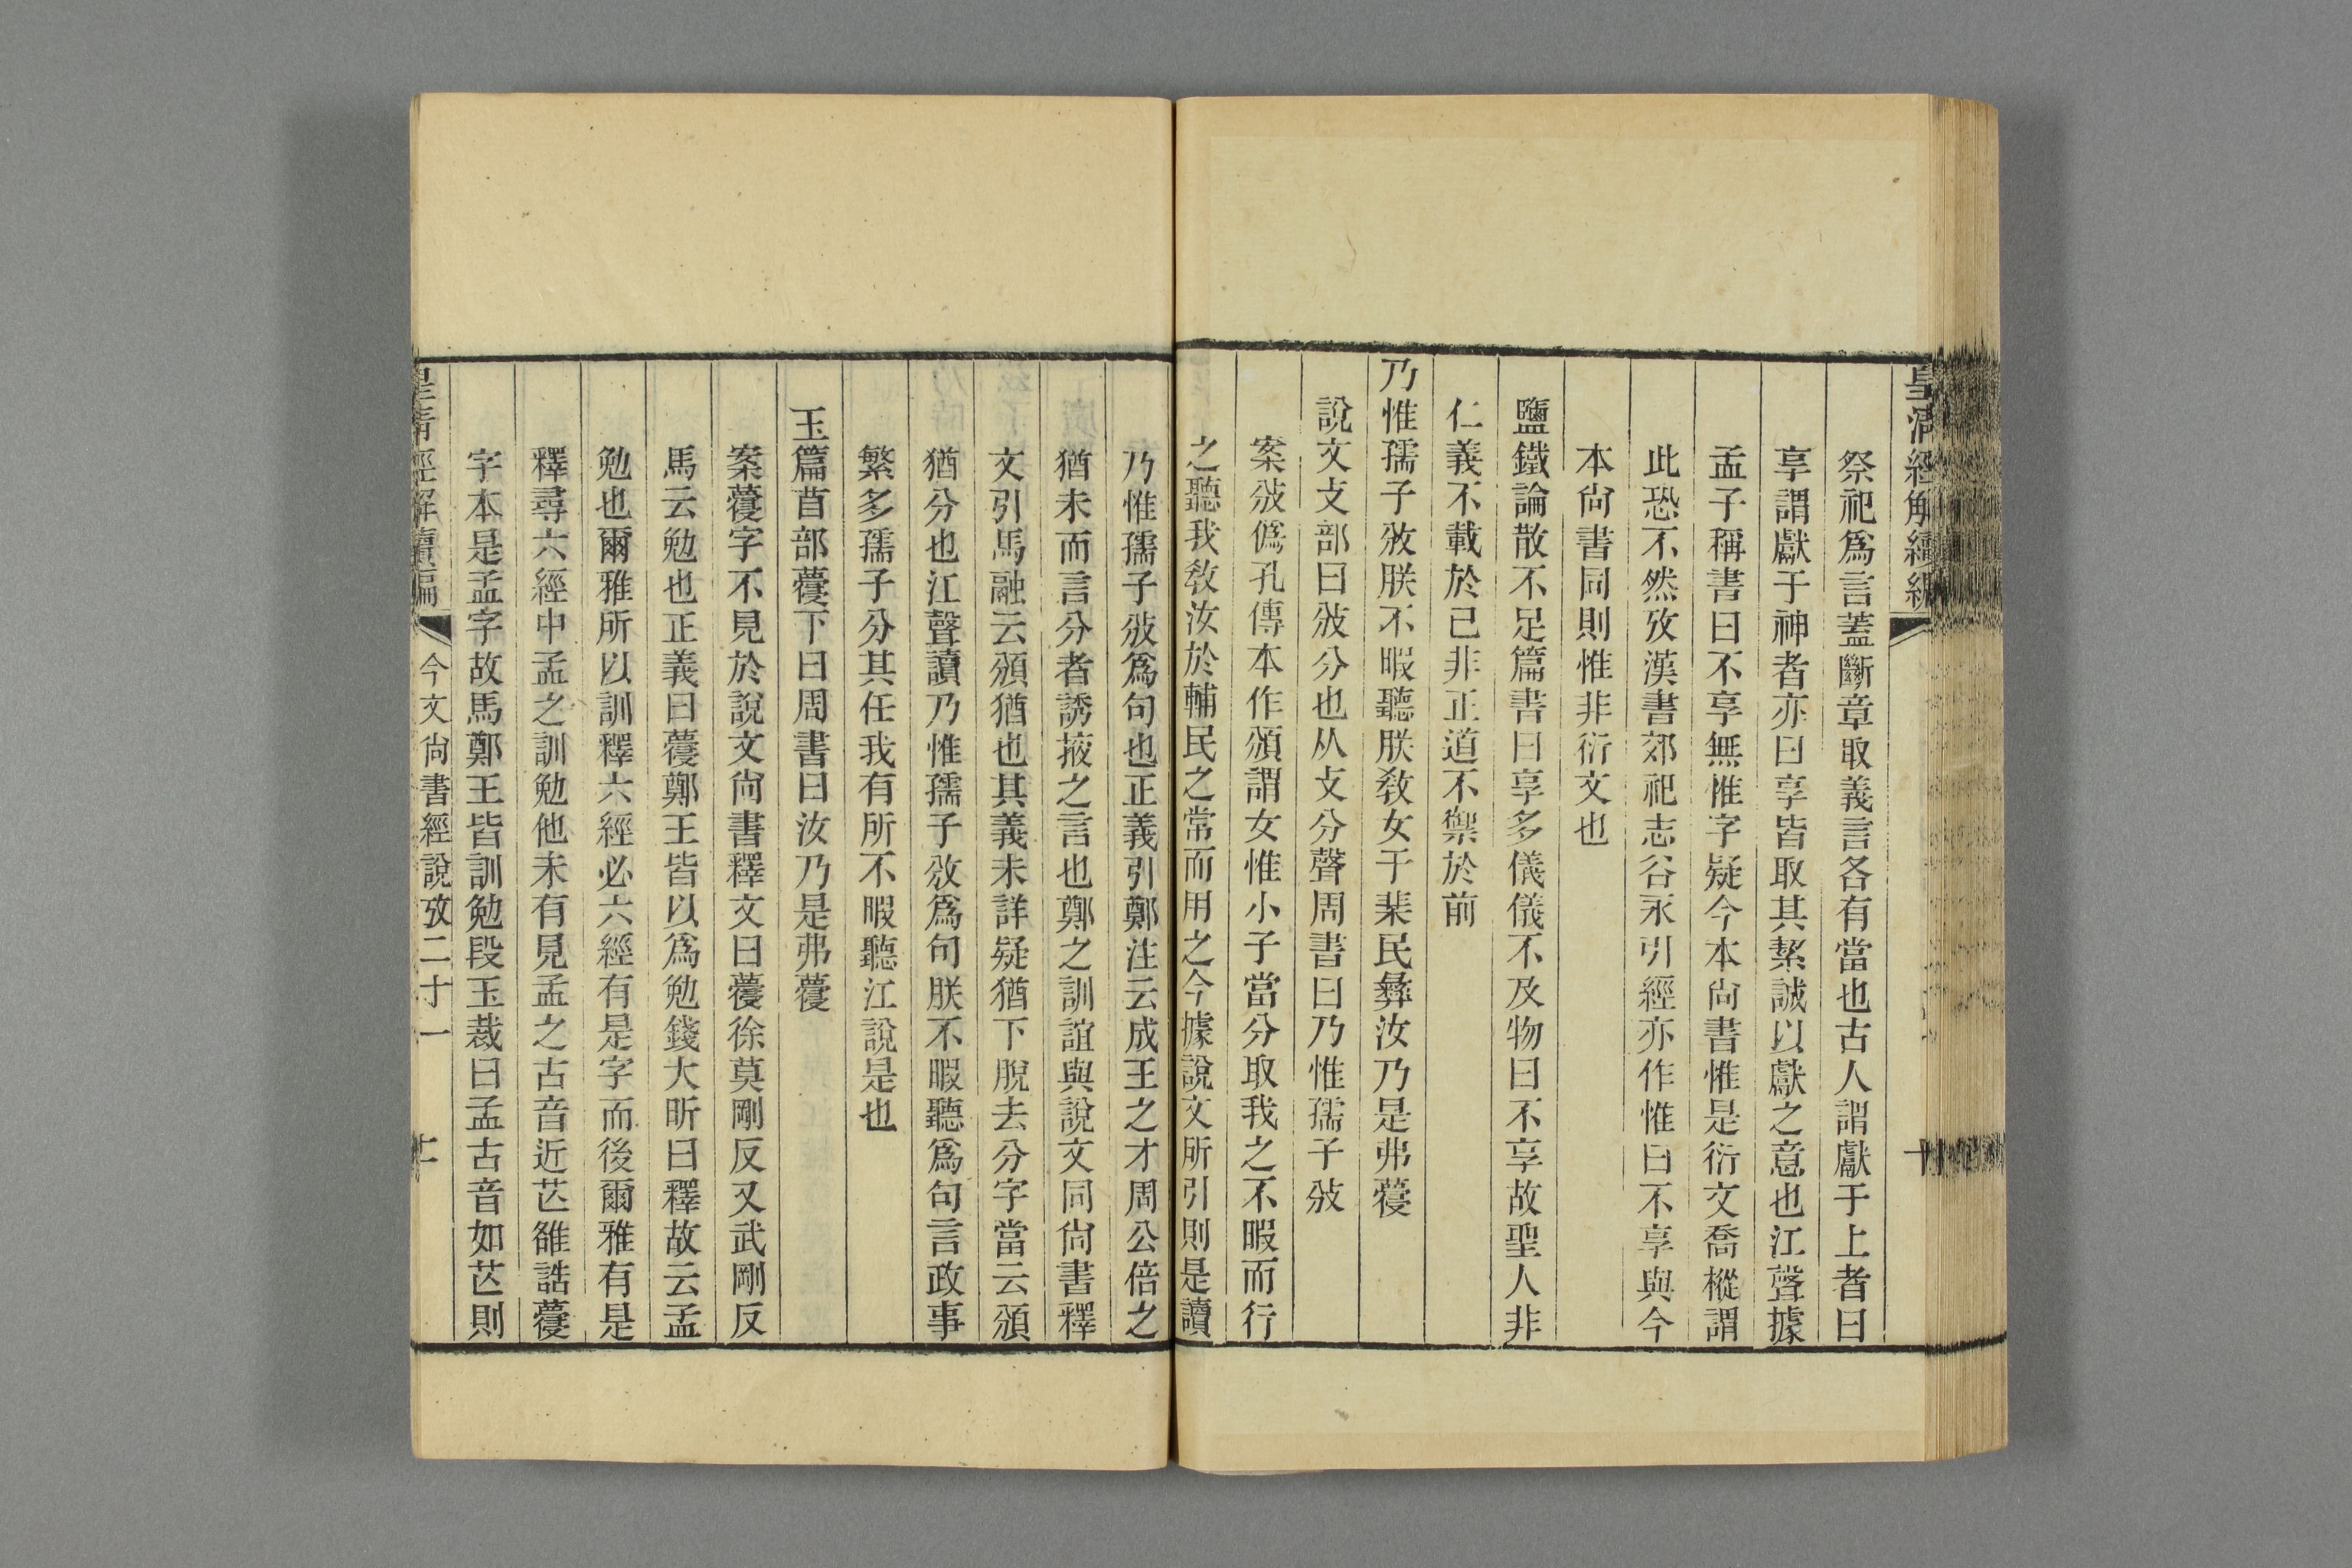 皇清經解續編
十
祭祀爲言蓋斷章取義言各有當也古人謂獻于上者曰
享謂獻于神者亦曰享皆取其絜誠以獻之意也江聲據
孟子稱書曰不享無惟字疑今本尙書惟是衍文喬樅謂
此恐不然攷漢書郊祀志谷永引經亦作惟曰不享與今
本尙書同則惟非衍文也
鹽鐵論散不足篇書曰享多儀儀不及物曰不享故聖人非
仁義不載於己非正道不禦於前
乃惟孺子攽朕不暇聽朕敎女于棐民彝汝乃是弗蘉
說文攴部曰攽分也从攴分聲周書曰乃惟孺子攽
案攽僞孔傳本作頒謂女惟小子當分取我之不暇而行
之聽我敎汝於輔民之常而用之今據說文所引則是讀
乃惟孺子攽爲句也正義引鄭注云成王之才周公倍之
猶未而言分者誘掖之言也鄭之訓誼與說文同尙書釋
文引馬融云頒猶也其義未詳疑猶下脫去分字當云頒
猶分也江聲讀乃惟孺子攽爲句朕不暇聽爲句言政事
繁多孺子分其任我有所不暇聽江說是也
玉篇苜部蘉下曰周書曰汝乃是弗蘉
案蘉字不見於說文尙書釋文曰蘉徐莫剛反又武剛反
馬云勉也正義曰蘉鄭王皆以爲勉錢大昕曰釋故云孟
勉也爾雅所以訓釋六經必六經有是字而後爾雅有是
釋尋六經中孟之訓勉他未有見孟之古音近芒雒誥蘉
字本是孟字故馬鄭王皆訓勉段玉裁曰孟古音如芒則
皇清經解續編
今文尙書經說攷二十一
十一